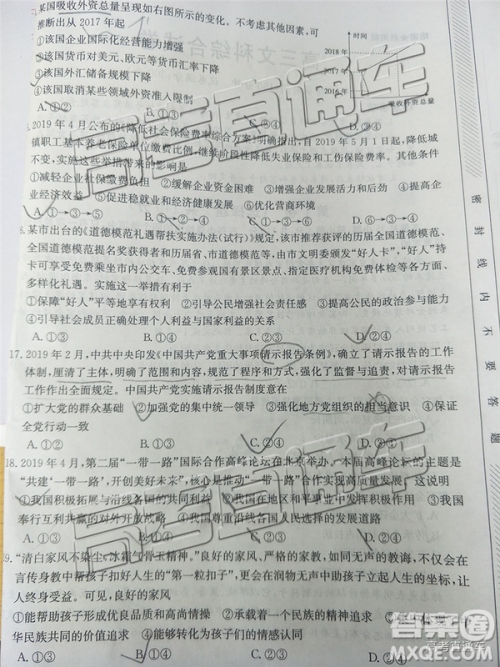 某国吸收外资总量呈现如右图所示的变化。不考虑其他因素,可
推断出从 2017 年起
①该国企业国际化经营能力增强
②该国货币对美元、欧元等货币汇率下降
③该国外汇储备规模下降
④该国取消某些领域外资准入限制
时间
2018 年
2017 年
2016 年
吸收外资总量
A. ①③
B.
D. ②④
2019 年 4 月公布的《降低社会保险费率综合方案》明确指出,自 2019 年 5 月 1 日起,降低城
镇职工基本养老保险单位缴费比例,继续阶段性降低失业保险和工伤保险费率。其他条件
不变,实施这些举措带来的影响是
①减轻企业社保缴费负担 ②缓解企业资金困难 ③增强企业发展活力和后劲 ④提高企
业经济效益 ⑤促进就业和经济健康发展 ⑥优化营商环境
A. ①→③→⑤
D. ①→②→④
某市出台的《道德模范礼遇帮扶实施办法(试行)》规定,该市推荐获评的历届全国道德模范、
全国道德模范提名奖获得者和历届省、市道德模范等,由市文明委颁发“好人卡”,“好人”持
卡可享受乘坐市内公交车、免费参观国有景区景点、指定医疗机构免费体检等方面的优惠、
多样化礼遇。实施这一举措有利于
①保障“好人”平等地享有权利 ②引导公民增强道德观念 ③提高公民的政治参与能力
④引导社会成员正确处理个人利益与国家利益的关系
A. ①③
B. ①④
C. ②③
D. ②④
17. 2019 年 2 月,中共中央印发《中国共产党重大事项请示报告条例》,确立了请示报告的工作
体制,厘清了主体,明确了范围和内容,规范了程序和方式,强化了监督与追责,对请示报告
工作作出全面规定。中国共产党实施请示报告制度意在
①扩大党的群众基础 ②加强党的集中统一领导 ③强化地方党组织的担当 ④保证
全党行动一致
A. ①②
B. ①③
C. ②④
D. ③④
18. 2019 年 4 月,第二届“一带一路”国际合作高峰论坛在北京举办。本届高峰论坛的主题是
“共建‘一带一路’、开创美好未来”,核心是推动“一带一路”合作实现高质量发展。这说明
①我国积极拓展与沿线各国的共同利益 ②我国在地区和平事业中发挥积极作用 ③我国
奉行互利共赢的对外开放战略 ④我国尊重沿线各国人民选择的发展道路
A. ①②
B. ①③
C. ②④
D. ③④
9. “清白家风不染尘,冰霜气骨玉精神。”良好的家风、严格的家教,如同无声的教诲,不仅会在
言传身教中帮孩子扣好人生的“第一粒扣子”,更会在润物无声中助孩子立起人生的坐标,让
人终身受益。可见,良好的家风
①能帮助孩子形成优良品质和高尚情操 ②承载着一个民族的精神追求
华民族共同的价值追求 ④能够转化为孩子们的情感认同
A. ①②
B. ①③
C. ②④
D. ③④
密 封 线 内 不 要 答 题
高考直通车
高考直通车
答案圈